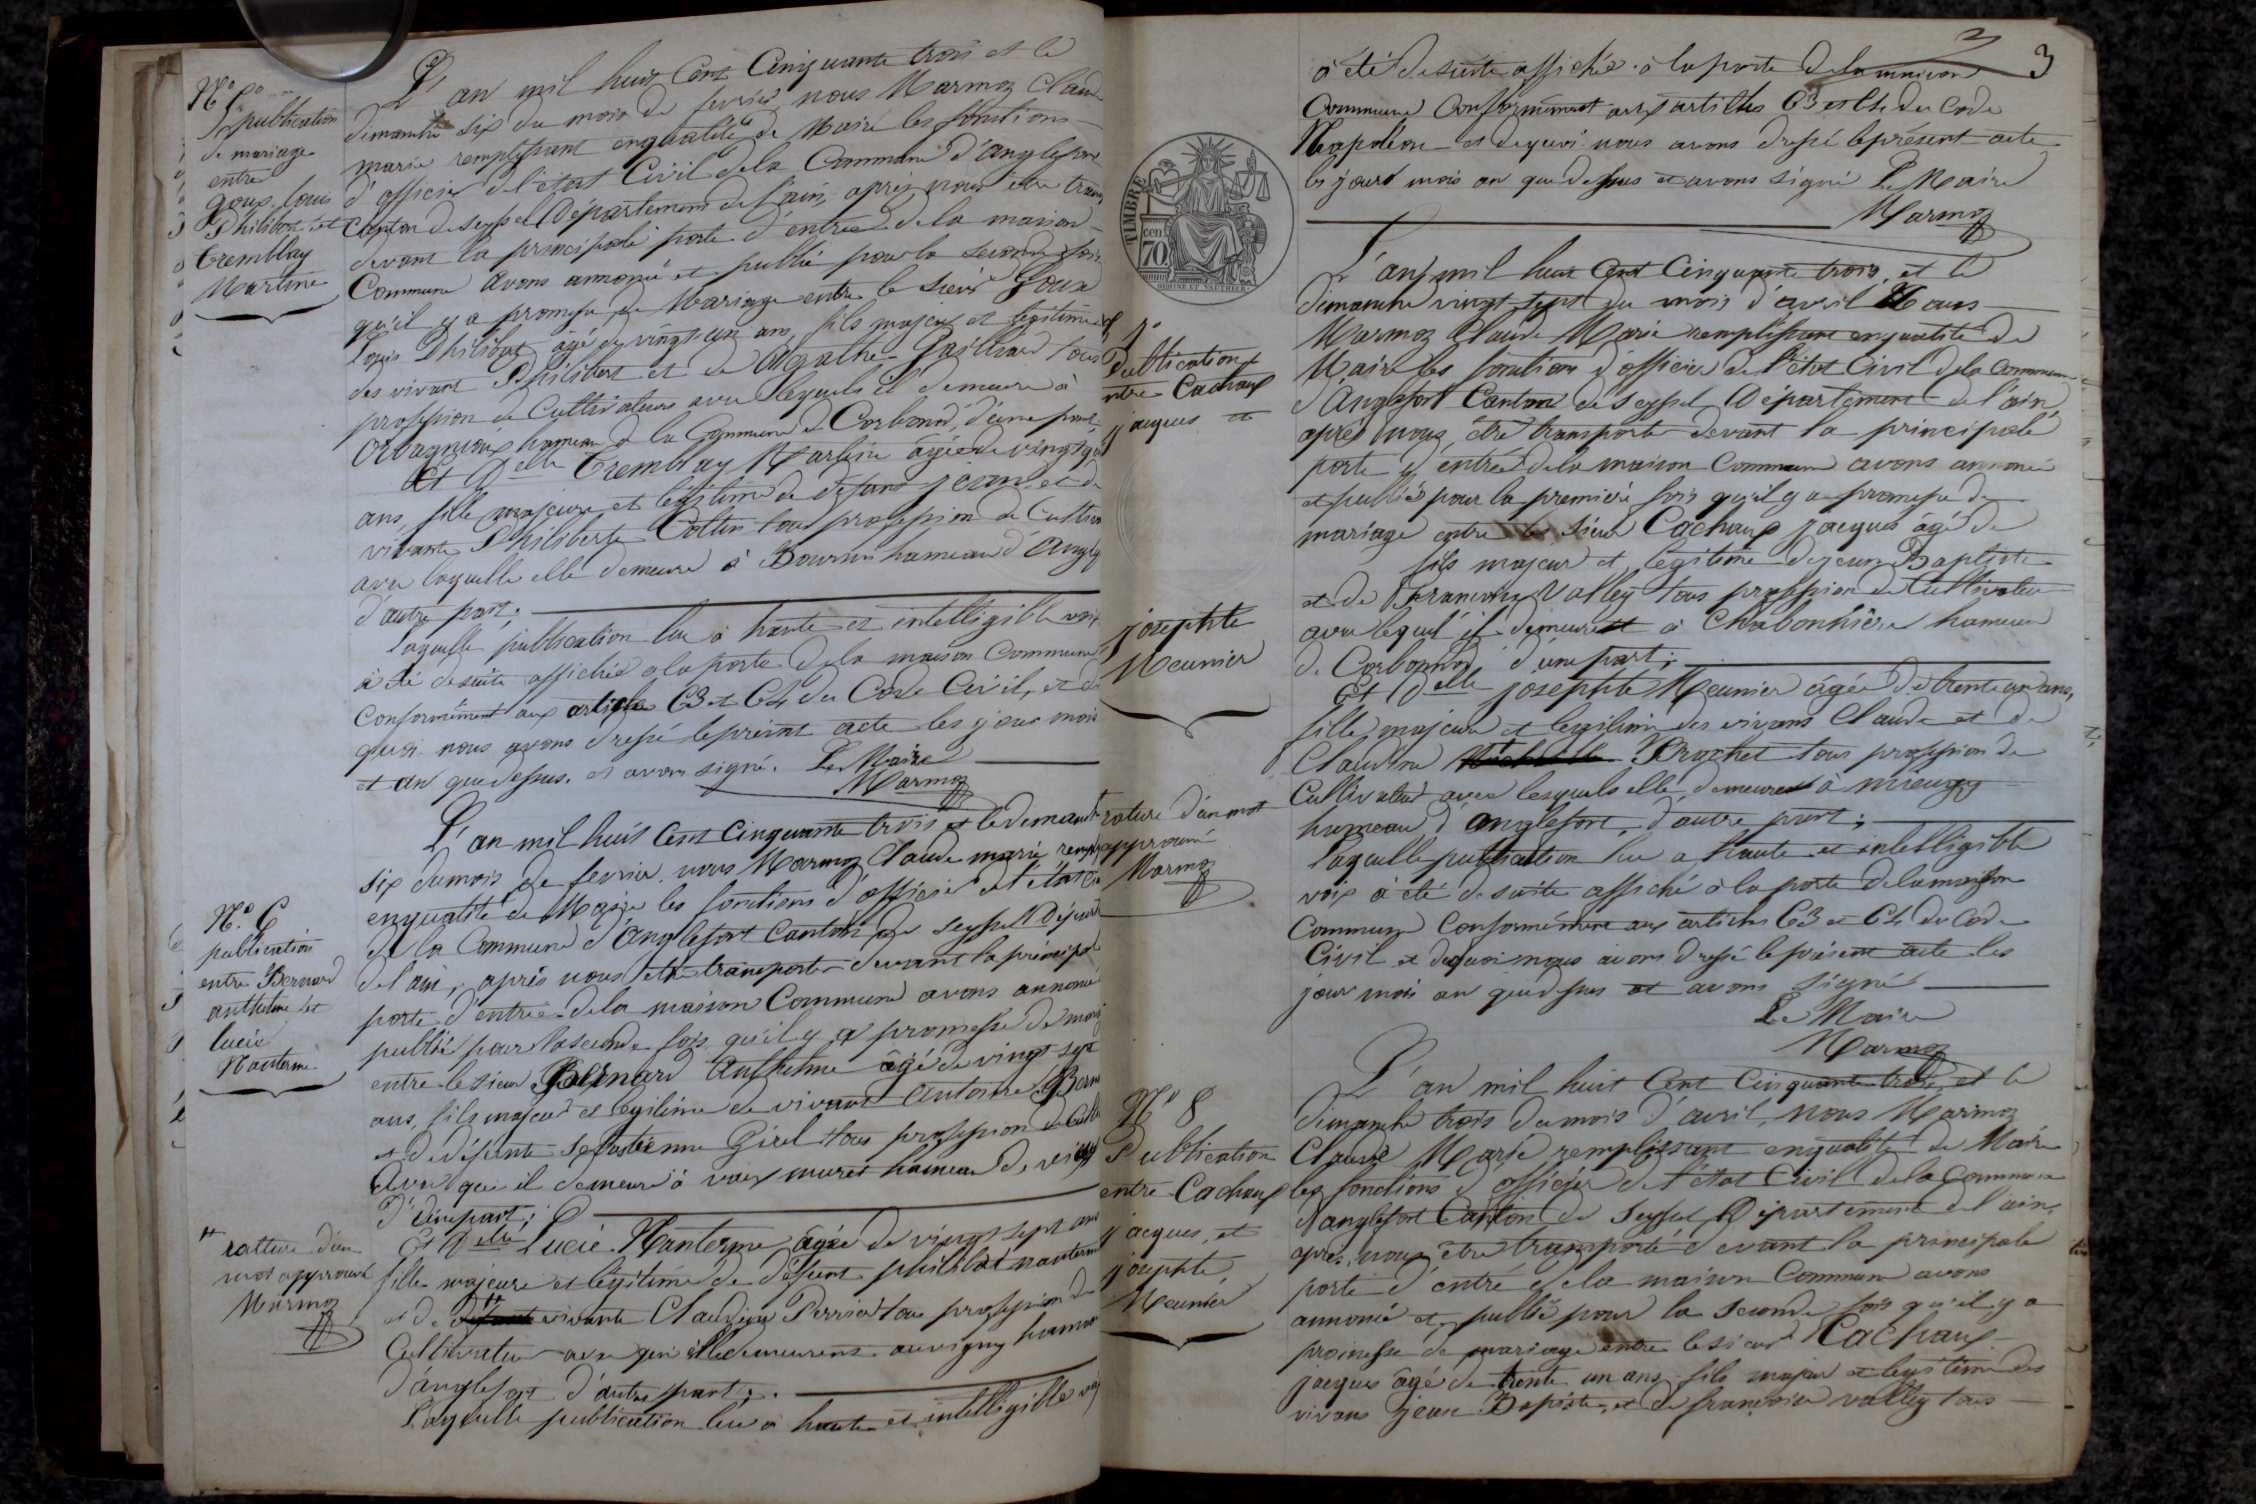 N° 5
publication
de mariage
entre
goux louis
Philibert et
Tremblay
Martine
L'an mil huit Cent Cinquante trois et le
dimanche six du mois de fevrier nous Marmoz Claude
marie remplissant enqualité de Maire les fonctions
d'officier de l'état Civil dela Commune d'anglefort
Canton de seyssel Département de l'ain, après nous être trans
devant la principale porte d'entrée de la maison
Commune avons annoncé et publié pour la seconde fois
qu'il y a promesse de Mariage entre le sieur Goux
louis Philibert âgé de vingt six ans, fils majeur et légitime
des vivant Philibert et de Agathe Gaillard tous
profession de Cultivateurs avec lesquels il demeure à
Orbagnoux hameau de la Commune de Corbonod, d'une part
Et Delle Tremblay Martine âgée de vingt
ans, fille majeure et légitime de défunt jean et de
vivante Philiberte Collin tous profession de Cultiva
avec laquelle elle demeure à Bovinin hameau d'Angle
d'autre part;
laquelle publication lue à haute et intelligible voix
à été desuite affichée a la porte dela maison Commune
Conformément aux articles 63 et 64 du Code Civil, et de
quoi nous avons dressé le présent acte les jour mois
et an que dessus. et avons signé. Le Maire
Marmoz
N° 6
publication
entre Bernard
anthelme et
lucie
Nanterme
L'an mil huit Cent Cinquante trois et le dimanche
six du mois de fevrier nous Marmoz Claude marie rempli
enqualité de Maire les fonctions d'officier de l'état Civ
de la Commune d'Anglefort Canton de seyssel Départ
de l'ain, après nous être transporté devant la principale
porte d'entrée dela maison Commune avons annoncé
publié pour la seconde fois qu'il y a promesse de mariag
entre le sieur Bernard Anthelme âgé de vingt sept
ans, fils majeur et légitime de vivant Antoine Bern
et de défunte Sébastienne Girel tous profession de Cult
Avec qui il demeure à vaux muret hameau de
D'une part;
Et Delle Lucie Nanterme âgée de vingt sept ans
fille majeure et légitime de défunt philibert nanterme
et de défunte vivante Claudine Perrier tous profession de
Cultivateur avec qui elle demeurent auvigny hameau
d'anglefort d'autre part;
laquelle publication lue à haute et intelligible voix
rature d'un
mot approuvé
Marmoz
3
à été desuite affichée à la porte dela maison
Commune Conformément aux articles 63 et 64 du Code
Napoléon et dequoi nous avons dressé leprésent acte
les jours mois an que dessus et avons signé Le Maire
Marmoz
TIMBRE
70 cen
7°
Publication
entre Cachoux
jacques et
josephte
Meunier
L'an mil huit Cent Cinquante trois et le
dimanche vingt sept du mois d'avril Nous
Marmoz Claude Marie remplissant enqualité de
Maire les fonctions d'officier de l'état Civil dela Commune
d'Anglefort Canton de seyssel Département de l'ain,
après nous être transporté devant la principale
porte d'entrée dela maison Commune avons annoncé
et publié pour la première fois qu'il y a promesse de
mariage entre le sieur Cachoux jacques âgé de
fils majeur et légitime de jean Baptiste
et de francoise Valley tous profession de Cultivateur
avec lequel il demeurent à Chabonnière hameau
de Corbonod d'une part;
Et Delle josephte Meunier âgée de trente un ans,
fille majeure et légitime des vivans Claude et de
Claudine Brochet tous profession de
Cultivateur avec lesquels elle demeurent à mieugy
hameau d'anglefort, d'autre part;
laquelle publication lue a haute et intelligible
voix à été desuite affiché à la porte dela maison
Commune Conformément aux articles 63 et 64 du Code
Civil et dequoi nous avons dressé le présent acte les
jour mois an que dessus et avons signé
Le Maire
Marmoz
rature d'un mot
approuvé
Marmoz
N° 8
Publication
entre Cachoux
jacques, et
josephte
Meunier
L'an mil huit Cent Cinquante trois, et le
dimanche trois du mois d'avril, nous Marmoz
Claude Marie remplissant enqualité de Maire
les fonctions d'officier de l'état Civil dela Commune
d'anglefort Canton de Seyssel Département de l'ain,
après nous être transporté devant la principale
porte d'entré dela maison Commune avons
annoncé et publié pour la seconde fois qu'il y a
promesse de mariage entre le sieur Cachoux
jacques âgé de trente un ans, fils majeur et légitime des
vivans jean Baptiste, et de francoise valley tous